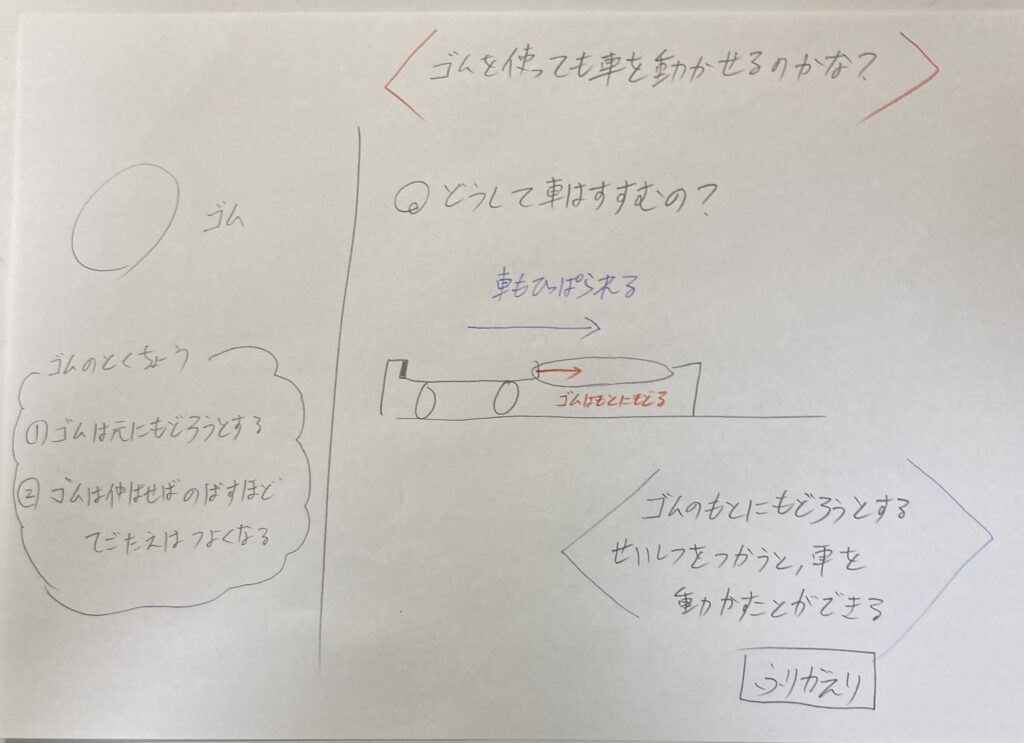 ゴムを使っても車を動かせるのかな?
ゴム
Q どうして車はすすむの?
車もひっぱられる
ゴムはもとにもどる
ゴムのとくちょう
① ゴムは元にもどろうとする
② ゴムは伸ばせばのばすほど
てごたえはつよくなる
ゴムのもとにもどろうとする
せいしつをつかうと,車を
動かすことができる
ふりがえり